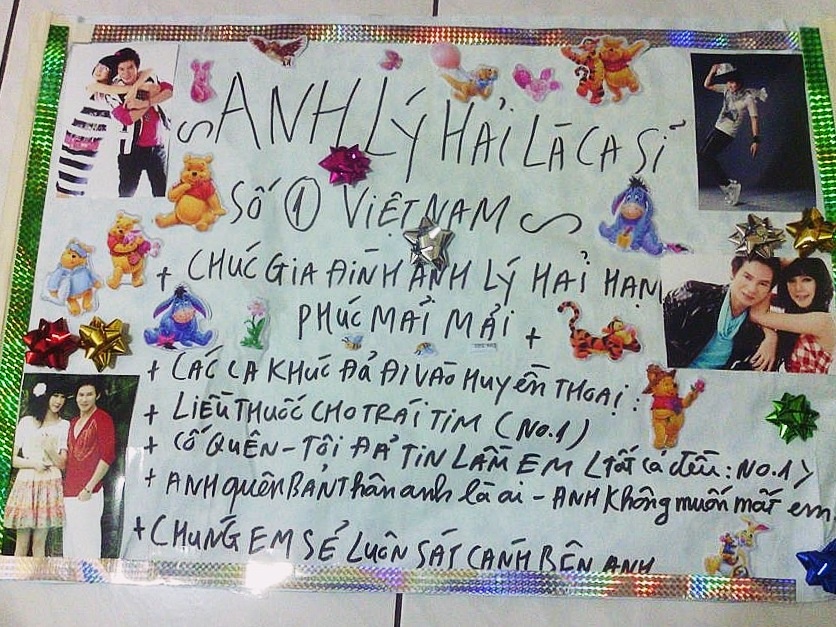 ~ANH LÝ HẢI LÀ CA SỈ
SỐ 1 VIỆT NAM ~
+ CHÚC GIA ĐÌNH ANH LÝ HẢI HẠNH
PHÚC MẢI MẢI +
+ CÁC CA KHÚC ĐẢ ĐI VÀO HUYỀN THOẠI:
+ LIỀU THUỐC CHO TRÁI TIM (NO.1)
+ CỐ QUÊN - TÔI ĐẢ TIN LẦM EM (tất cả đều: NO.1)
+ ANH quên BẢN Thân anh là ai - ANH Không muốn mất em
+ CHÚNG EM SẺ LUÔN SÁT CÁNH BÊN ANH